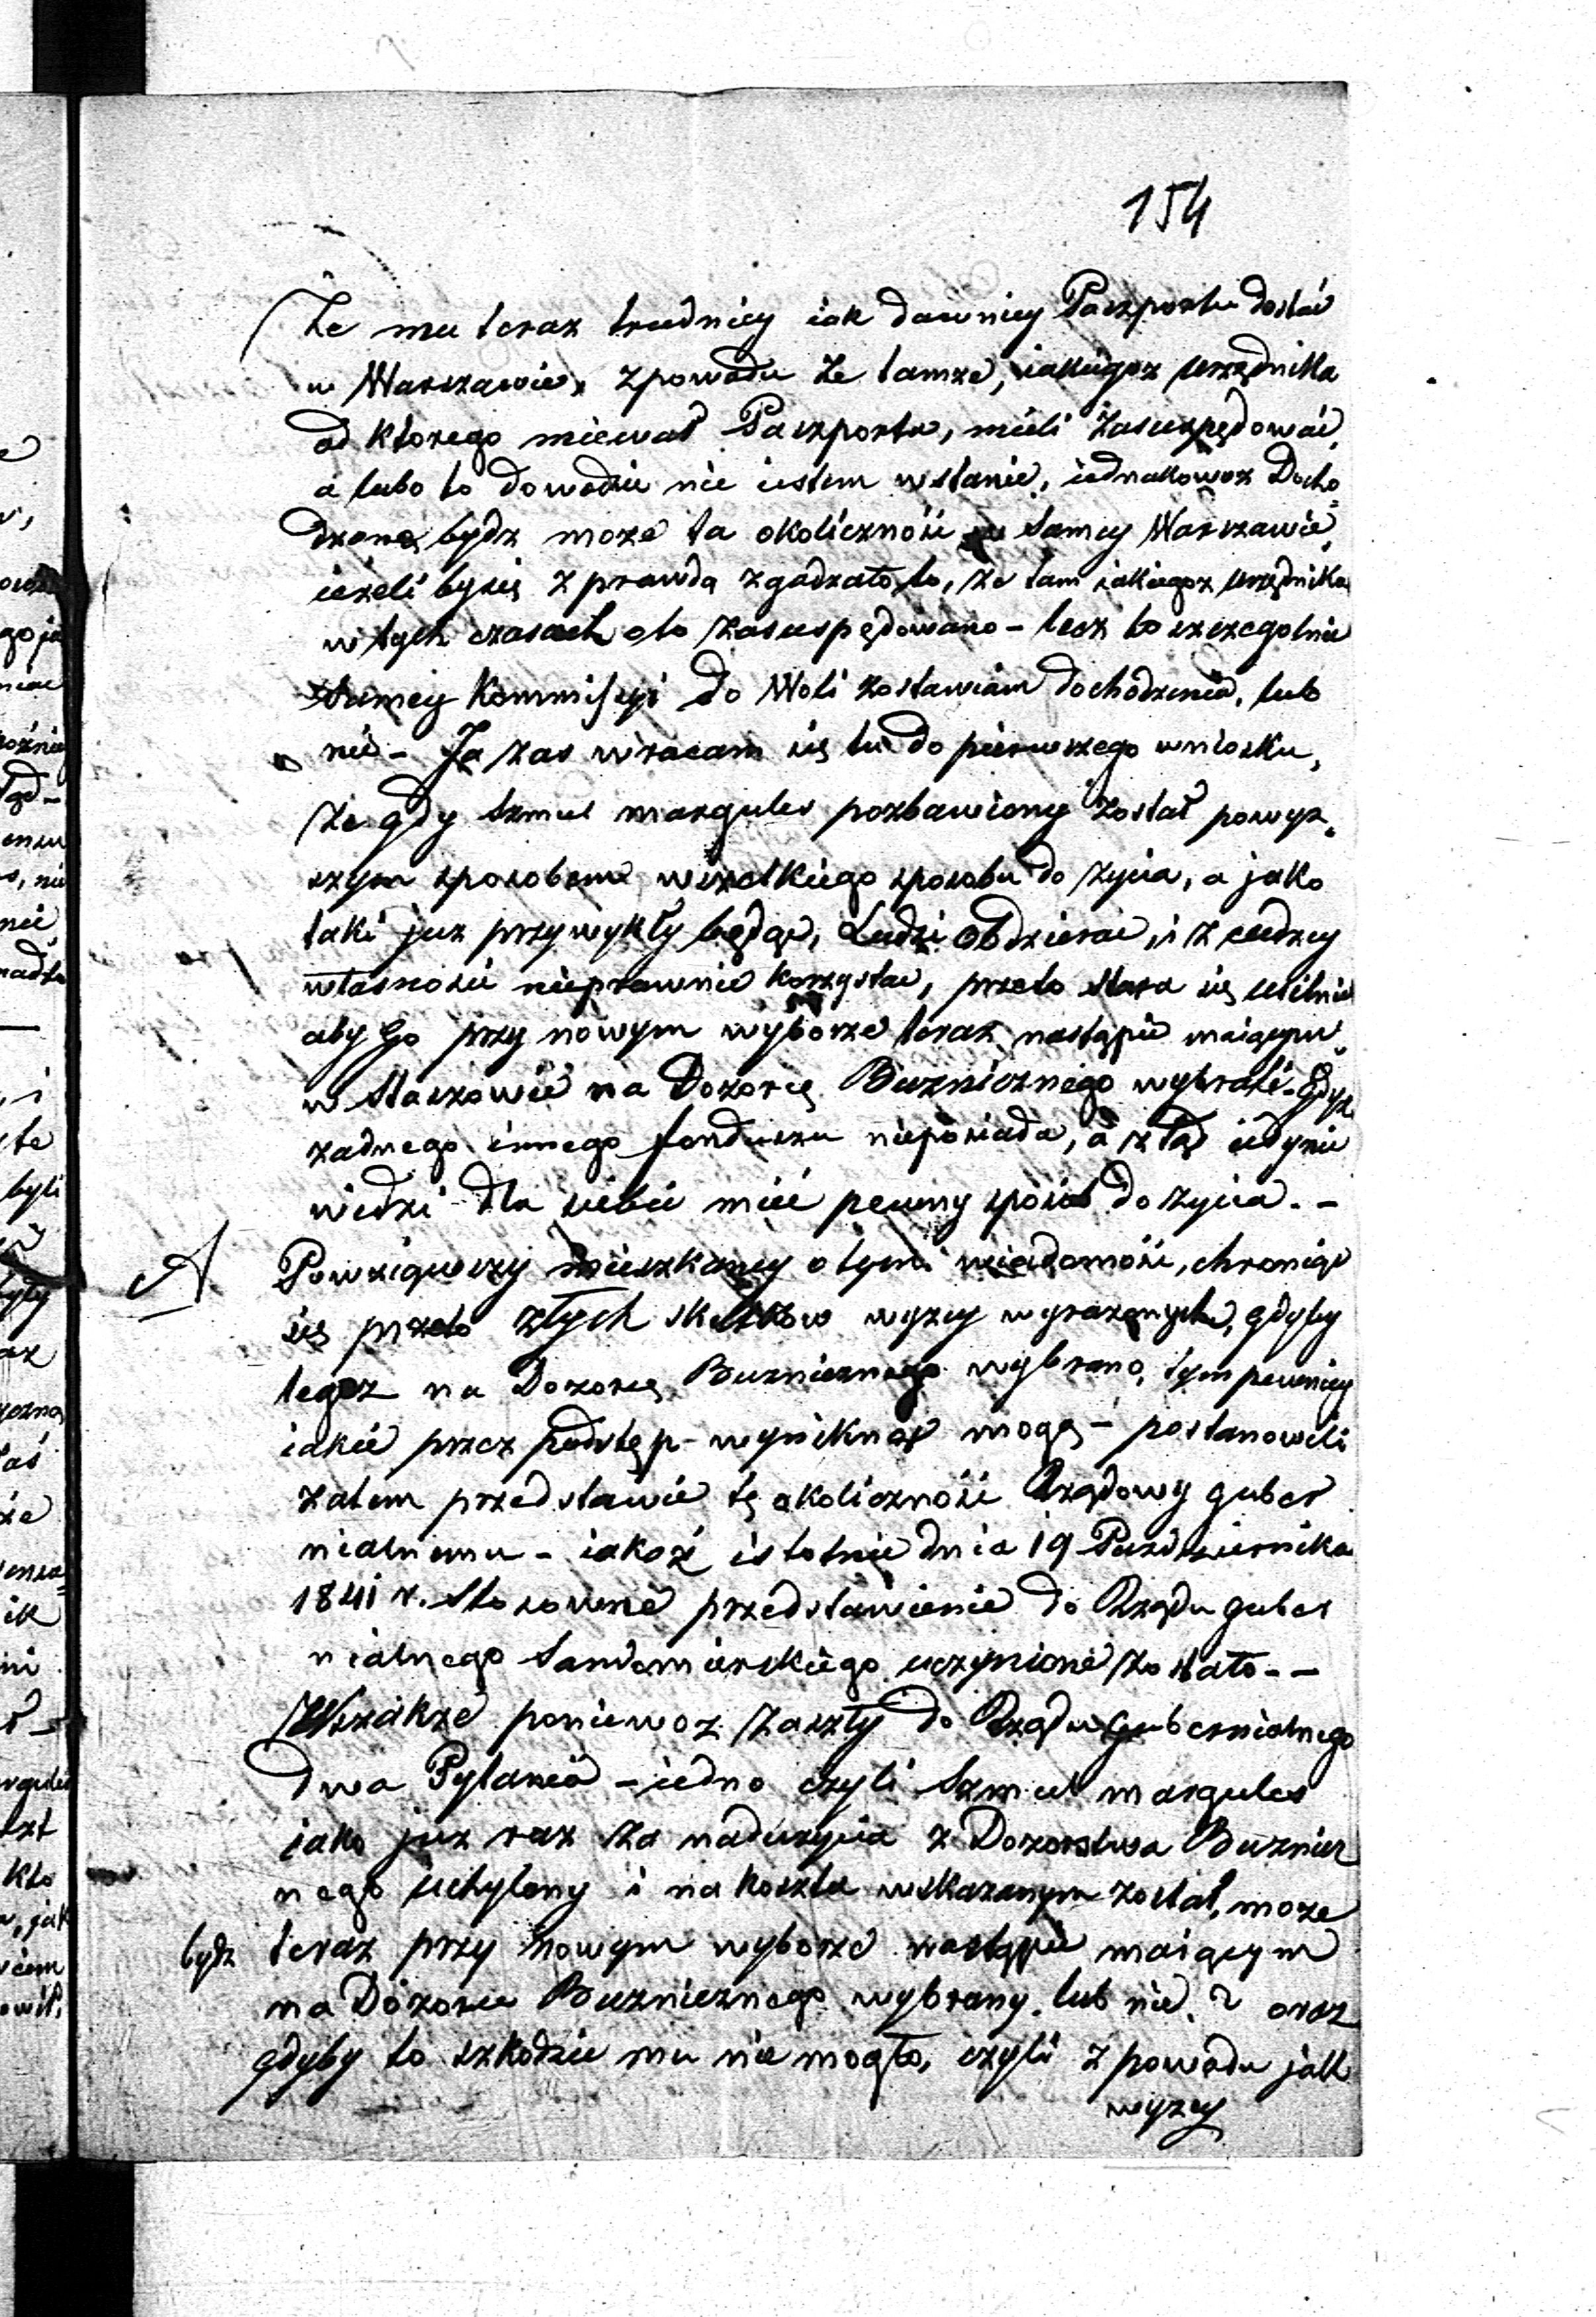 154
Że mu teraz trudniey iak dawniey Paszportu dostać
w Warszawie, z powodu że tamże, iakiegoz urzędnika
od ktorego miewał Paszporta, mieli zasuspędować,
a lubo to dowodzić nie iestem wstanie, iednakowoz Docho=
dzoną bydz moze ta okoliczność w samey Warszawie,
ieżeli by się z prawdą zgadzało to, że tam iakiegoz urzędnika
w tych czasach oto zasuspędowano - lecz to szczegolnie
samey Kommissyi do Woli zostawiam dochodzenia, lub
nie - Ja zas wracam się tu do pierwszego wniosku,
że gdy Szmul margules pozbawiony został powyz=
szym sposobem wszelkiego sposobu do życia, a jako
taki juz przywykły będąc, Ludzi obdzierac, i z cudzey
własnosci nieprawnie korzystac, przeto stara się usilnie
aby Go przy nowym wyborze teraz nastąpić maiącym
w Staszowie na Dozorcę Buznicznego wybrali - Gdyz
zadnego innego funduszu nieposiada, a ztąd iedynie
widzi dla siebie mieć pewny sposob do zycia. -
A Powziąwszy mieszkancy o tym wiadomość, chroniąc
się przeto złych skutkow wyzey wyrazonych, gdyby
tegoz na Dozorcę Buznicznego wybrano, tym pewniey
iakie przez podstęp - wyniknąć mogą - postanowili
zatem przedstawić tę okoliczność Rządowy guber
nialnemu - iakoż istotnie dnia 19 Pazdziernika
1841 r. stosowne przedstawienie do Rządu guber
nialnego Sandomierskiego uczynione zostało - -
Wszakże poniewoz zaszły do Rządu Gubernialnego
dwa Pytania - iedno czyli Szmul margules
iako juz raz za naduzycia z Dozorstwa Buznicz
nego uchylony i na koszta wskazanym został, moze
bydz teraz przy nowym wyborze nastąpić maiącym
na Dozorce Buznicznego wybrany. lub nie. ? oraz
gdyby to szkodzić mu nie mogło, czyli z powodu jak
wyzey